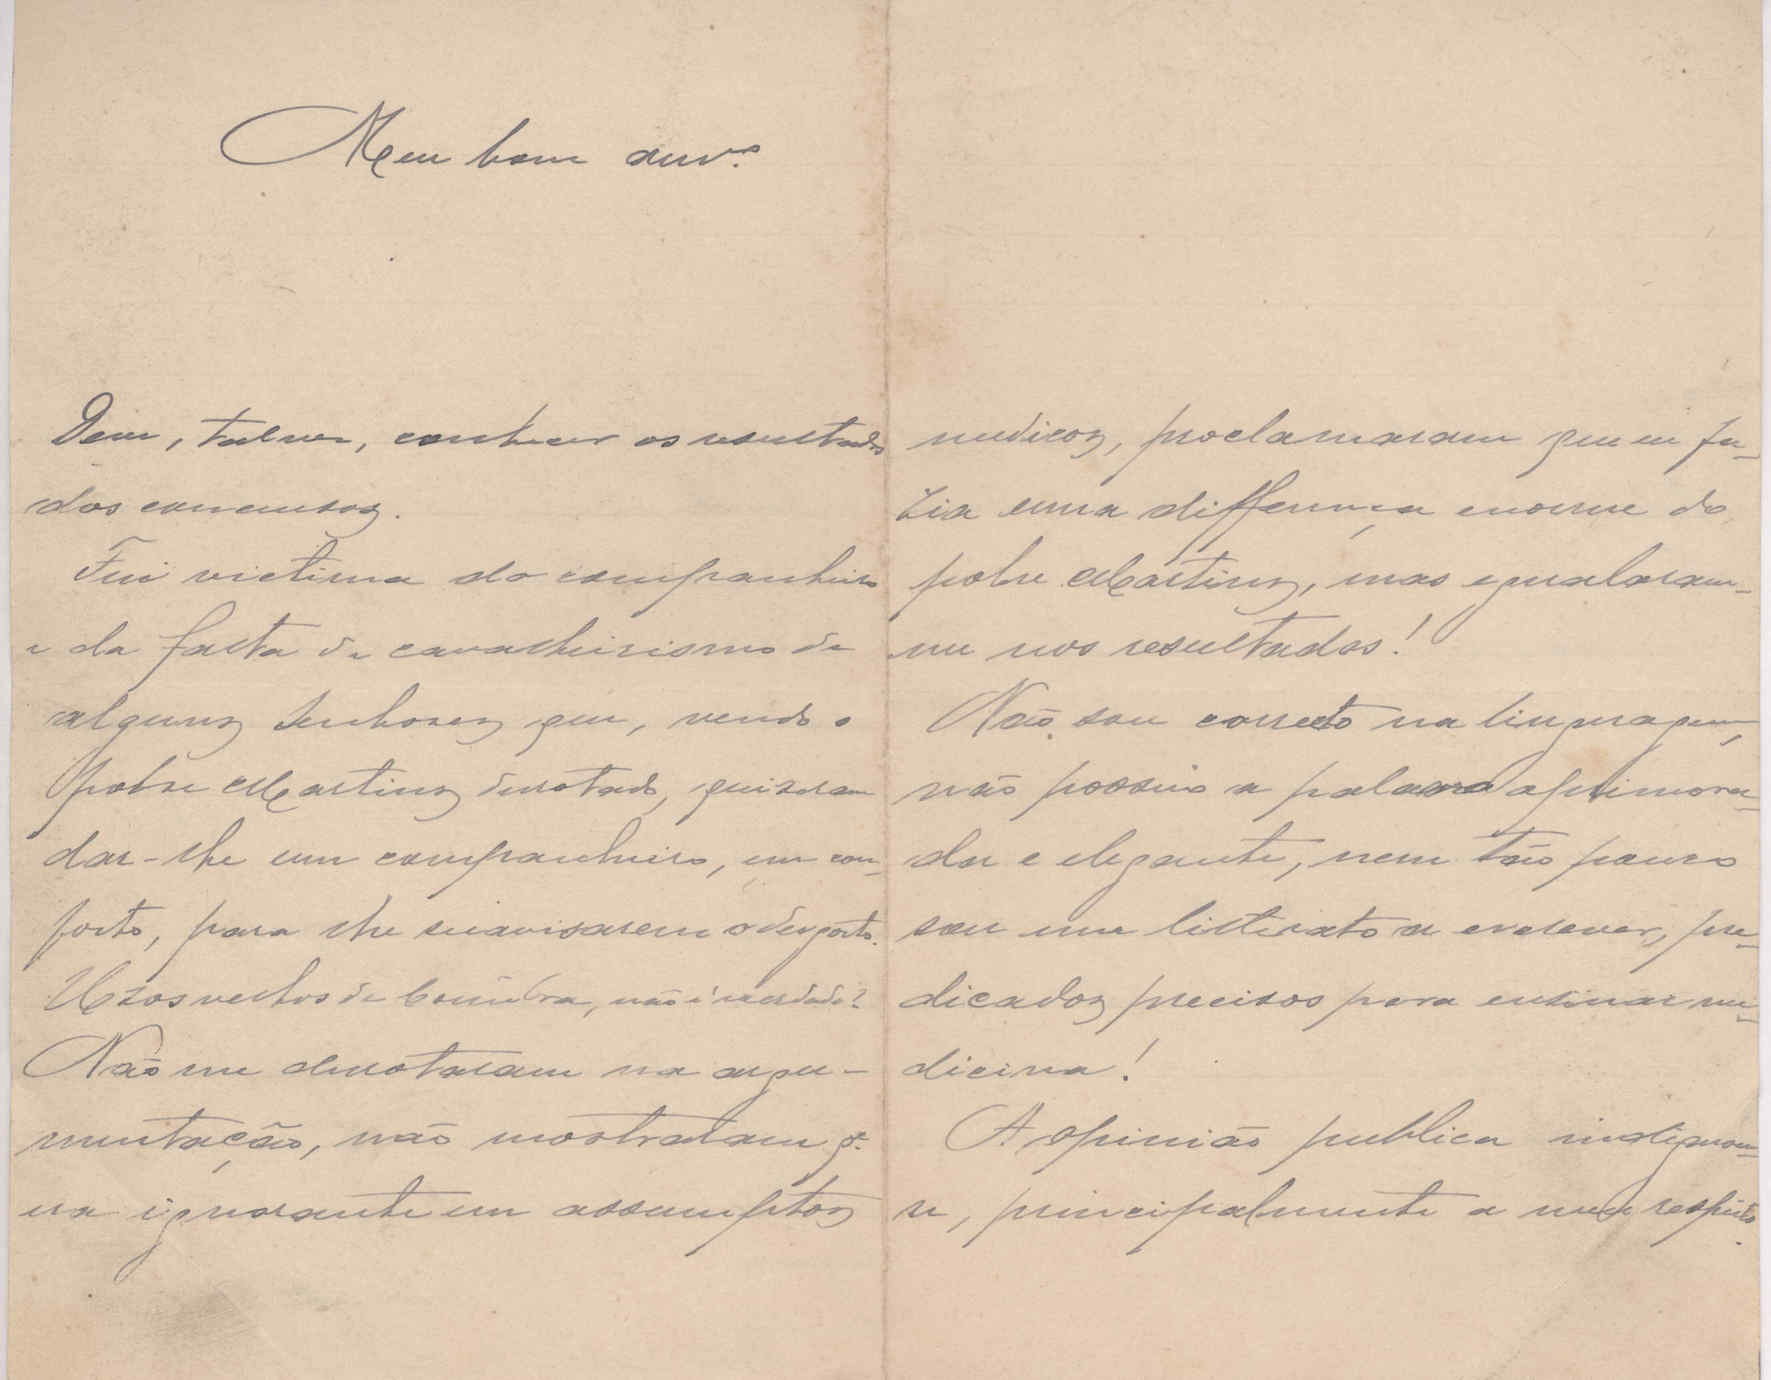 Meu bom am.º
Deve, talvez, conhecer os resultados
dos concursos.
Fui victima do companheiro
e da falta de cavalheirismo de
alguns senhores que, vendo o
pobre Martins derrotado, quizeram
dar-lhe um companheiro, um con-
forto, para lhe suavisarem o desgosto.
Uzos velhos de Coimbra, não é verdade?
Não me derrotaram na argu-
mentação, não mostraram q.
era ignorante em assumptos
medicos, proclamaram que eu fa-
zia uma differença enorme do
pobre Martins, mas egualaram-
me nos resultados!
Não sou correcto na linguagem,
não possuo a palavra aprimora-
da e elegante, nem tão pouco
sou um litterato a escrever, pre-
dicados precisos para ensinar me-
dicina!
A opinião publica indignou-
se, principalmente a meu respeito.